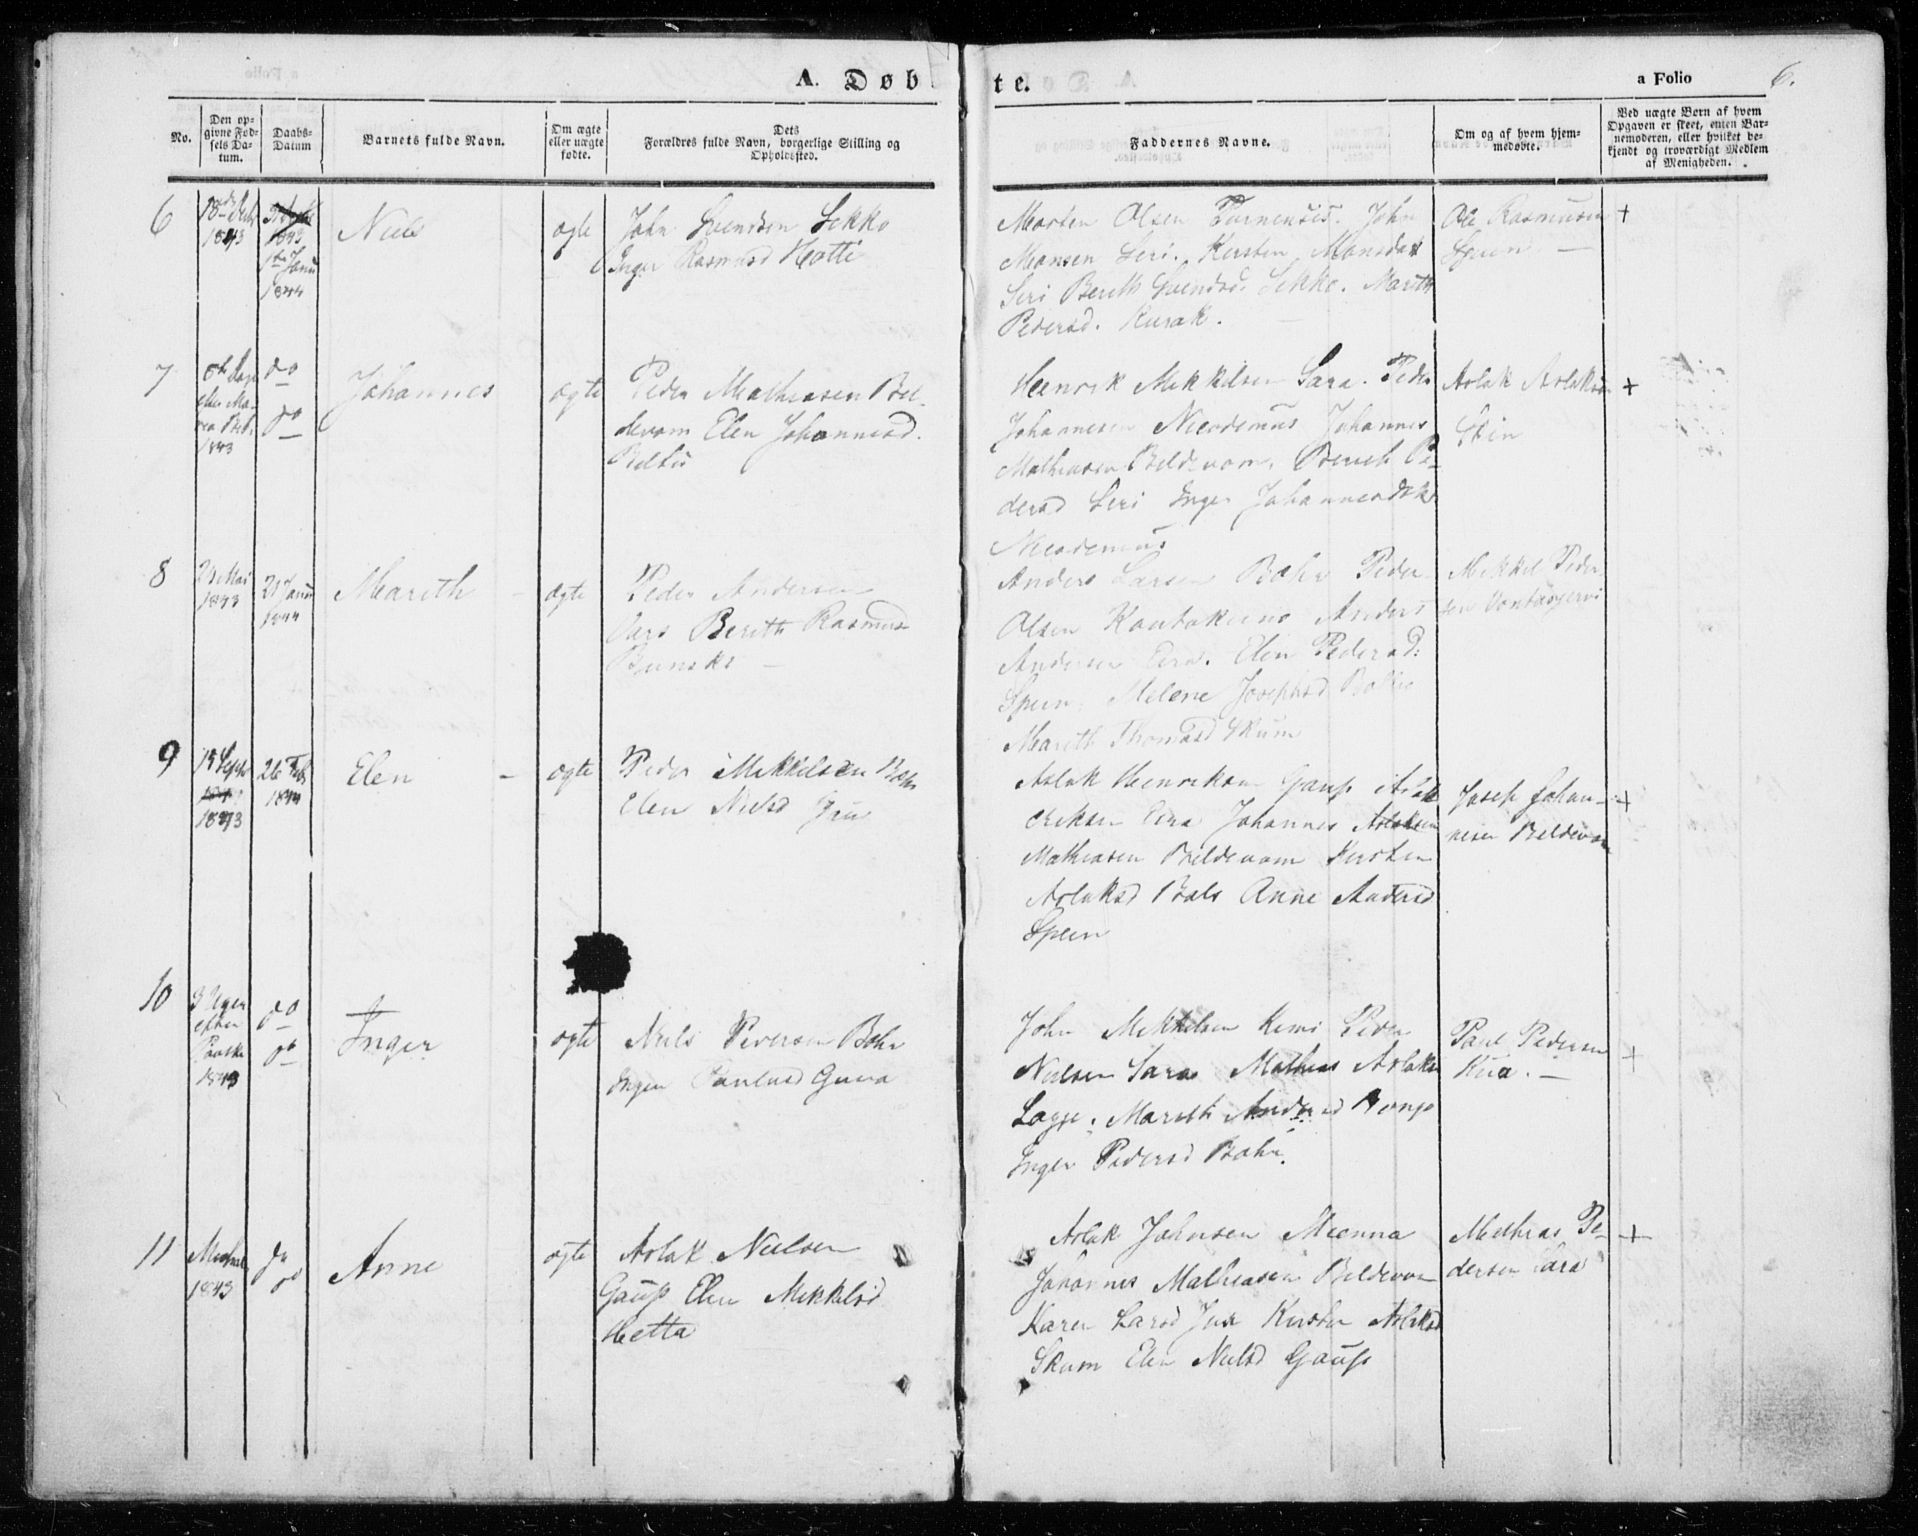 A. Døbte.
a Folio 6.
No.
Den opgivne Fødsels Datum.
Daabs-Datum
Barnets fulde Navn.
Om ægte eller uægte fødte.
Dets Forældres fulde Navn, borgerlige Stilling og Opholdssted.
Faddernes Navne.
Om og af hvem hjemmedøbte.
Ved uægte Børn af hvem Opgaven er skeet, enten Barnemoderen, eller hvilket bekjendt og troværdigt Medlem af Menigheden.
6
18
1843
1843
1ste Janu
1844
Niels
ægte
John Svendsen Sekko
Inger Rasmusd Hotti
Morten Olsen Turnensis. John
Monsen Seri. Kirsten Monsdat
Seri Berith Svendsd. Sekko. Marith
Pedersd. Kurak.
Ole Rasmusen
Speen —
+
7
1843
do
do
Johannes
ægte
Peder Mathiasen Bel-
devom Elen Johannesd.
Henrik Mikkelsen Sara. Peder
Johannesen Nicodemus Johannes
Mathiasen Beldevom. Berit Pe-
dersd Seri Inger Johannesd
Nicodemus
Aslak Aslaksen
+
8
24 Mai
1843
21 Janu
1844
Marith –
ægte
Peder Andersen
Berith Rasmus
–
Anders Larsen Bæhr Peder
Olsen Koutokeino Anders
Andersen Eira. Elen Pedersd:
Speen, Melene Josephsd
Marith Thomasd Skum
Mikkel Peder
sen
9
19 Sept
1843
26 Feb
1844
Elen –
ægte
Peder Mikkelsen Bæhr
Elen Nielsd
Aslak Henriksen Gaup Aslak
Eriksen Eira Johannes
Mathiasen Beldevom Kirsten
Aslaksd Bals Anne Andersd
Speen
Joseph Johan-
nesen Beldevom
+
10
3 Uger
efter
Paaske
1843
do
do
Inger
ægte
Niels Pedersen Bæhr
Inger Paulsd
John Mikkelsen Kemi Peder
Nielsen Sara Mathias Aslaksen
Marith Andersd
Inger Pedersd Bæhr.
Paul Pedersen
+
11
1843
do
do
Anne
ægte
Aslak Nielsen
Gaup Elen Mikkelsd
Hetta
Aslak Johnsen Mienna
Johannes Mathiasen Beldevom
Karen Larsd Jux Kirsten Aslaksd
Skum Elen Nielsd Gaup
Mathias Pe-
dersen Sara
+